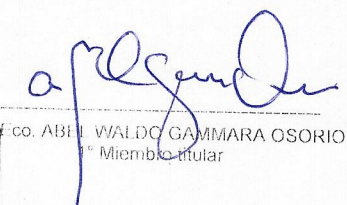 Eco. ABEL WALDO GAMMARA OSORIO
1° Miembro titular